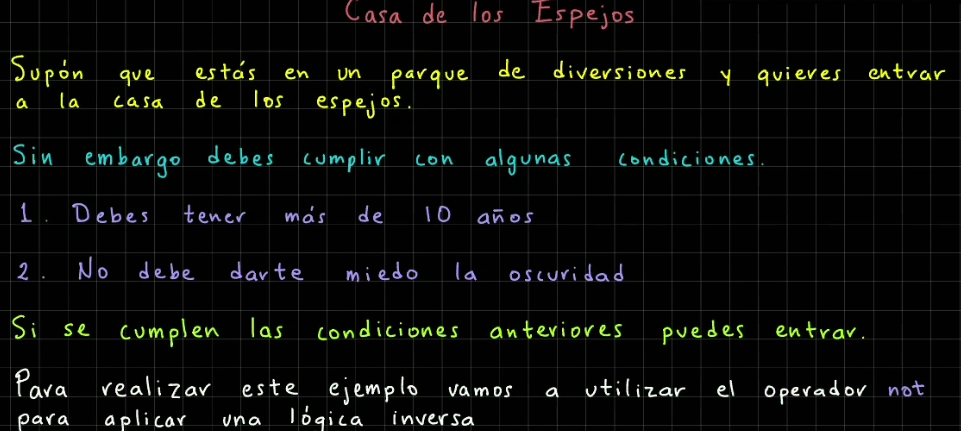 Casa de los Espejos
Supón que estás en un parque de diversiones y quieres entrar
a la casa de los espejos.
Sin embargo debes cumplir con algunas condiciones.
1. Debes tener más de 10 años
2. No debe darte miedo la oscuridad
Si se cumplen las condiciones anteriores puedes entrar.
Para realizar este ejemplo vamos a utilizar el operador not
para aplicar una lógica inversa